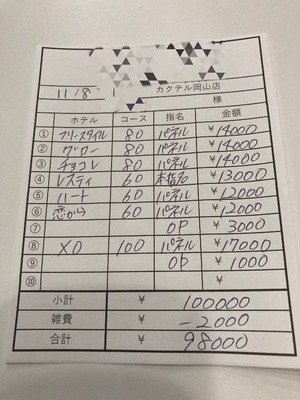 カクテル岡山店
11/8 様
ホテル コース 指名 金額
① フリースタイル 80 パネル ¥14000
② グロー 80 パネル ¥14000
③ チョコレ 80 パネル ¥14000
④ レスティ 60 本指名 ¥13000
⑤ ハート 60 パネル ¥12000
⑥ 恋から 60 パネル ¥12000
⑦ OP ¥3000
⑧ XO 100 パネル ¥17000
⑨ OP ¥1000
⑩ ¥
小計 ¥ 100000
雑費 ¥ -2000
合計 ¥ 98000